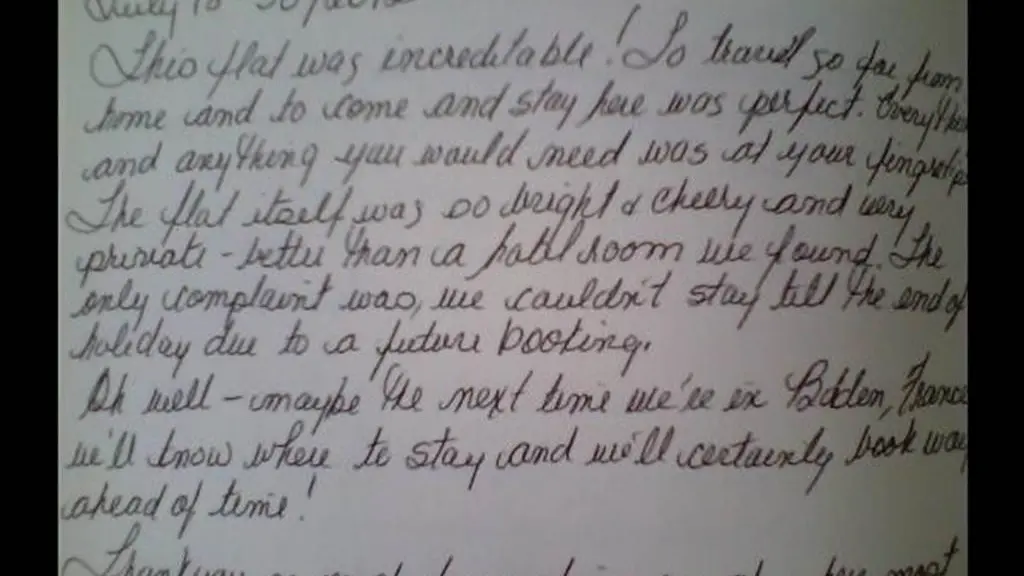 July 18
This flat was increditable! To travel so far from
home and to come and stay here was perfect. Everything
and anything you would need was at your fingertips
The flat itself was so bright & cheery and very
private - better than a hotel room we found. The
only complaint was, we couldn't stay till the end of
holiday due to a future booking.
Oh well - maybe the next time we're in France
we'll know where to stay and we'll certainly book way
ahead of time!
Thankyou most